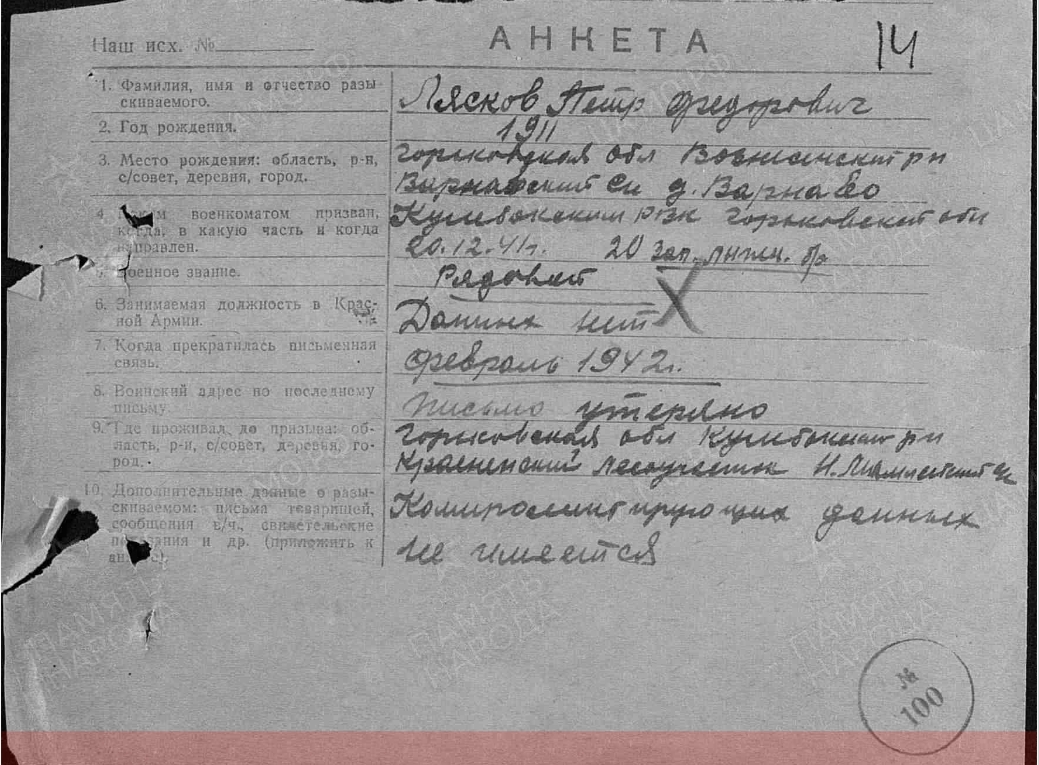 Наш исх. №
АНКЕТА
14
1. Фамилия, имя и отчество разы-
скиваемого.
Лясков Петр Федорович
2. Год рождения.
1911
3. Место рождения: область, р-н,
с/совет, деревня, город.
Горьковская обл Вознесенский рн
д. Варнаево
4. военкоматом призван,
когда, в какую часть и когда
направлен.
Кулебакским РВК Горьковской обл
20.12.41г. 20 зап. бр
военное звание.
Рядовой
6. Занимаемая должность в Крас-
ной Армии.
Данных нет
7. Когда прекратилась письменная
связь.
февраль 1942г.
8. Воинский адрес по последнему
письму.
письмо утеряно
9. Где проживал до призыва: об-
ласть, р-н, с/совет, деревня, го-
род.
Горьковская обл Кулебакский рн
лесоучасток
10. Дополнительные данные о разы-
скиваемом: письма товарищей,
сообщения в/ч, свидетельские
и др. (приложить к
Компрометирующих данных
не имеется
ПАМЯТЬ
НАРОДА
ПАМЯТЬ
НАРОДА
ПАМЯТЬ
НАРОДА
№
100